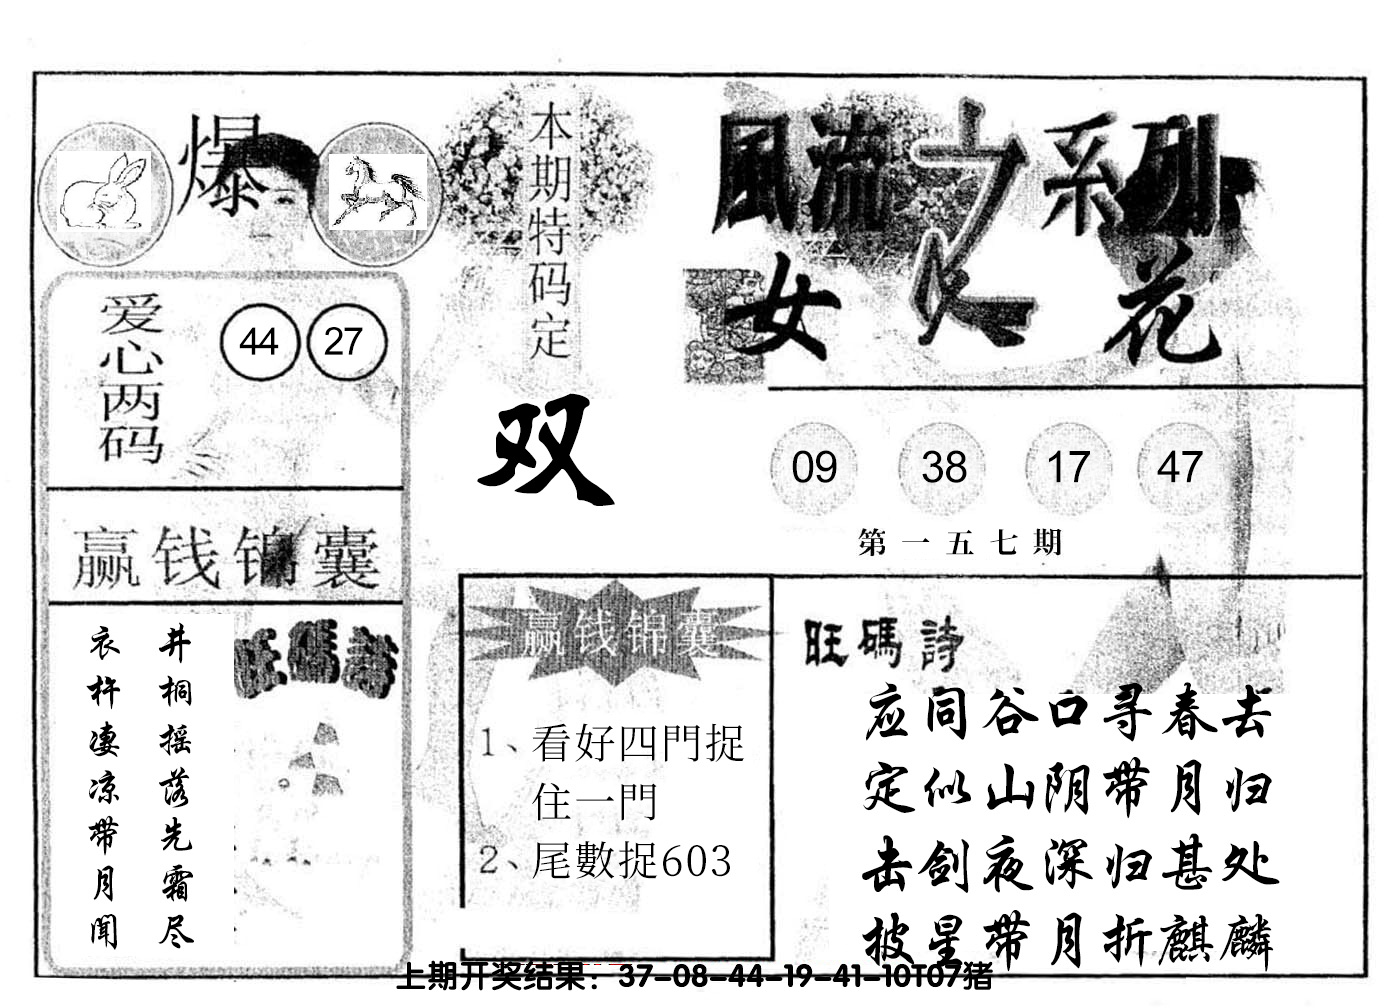 爆
爱心两码
44 27
赢钱锦囊
井桐摇落先霜尽
衣杵凄凉带月闻
旺碼詩
本期特码定
双
赢钱锦囊
1、看好四門捉
住一門
2、尾數捉603
風流之系列
女人花
09 38 17 47
第一五七期
旺碼詩
应同谷口寻春去
定似山阴带月归
击剑夜深归甚处
披星带月折麒麟
上期开奖结果：37-08-44-19-41-10T07猪